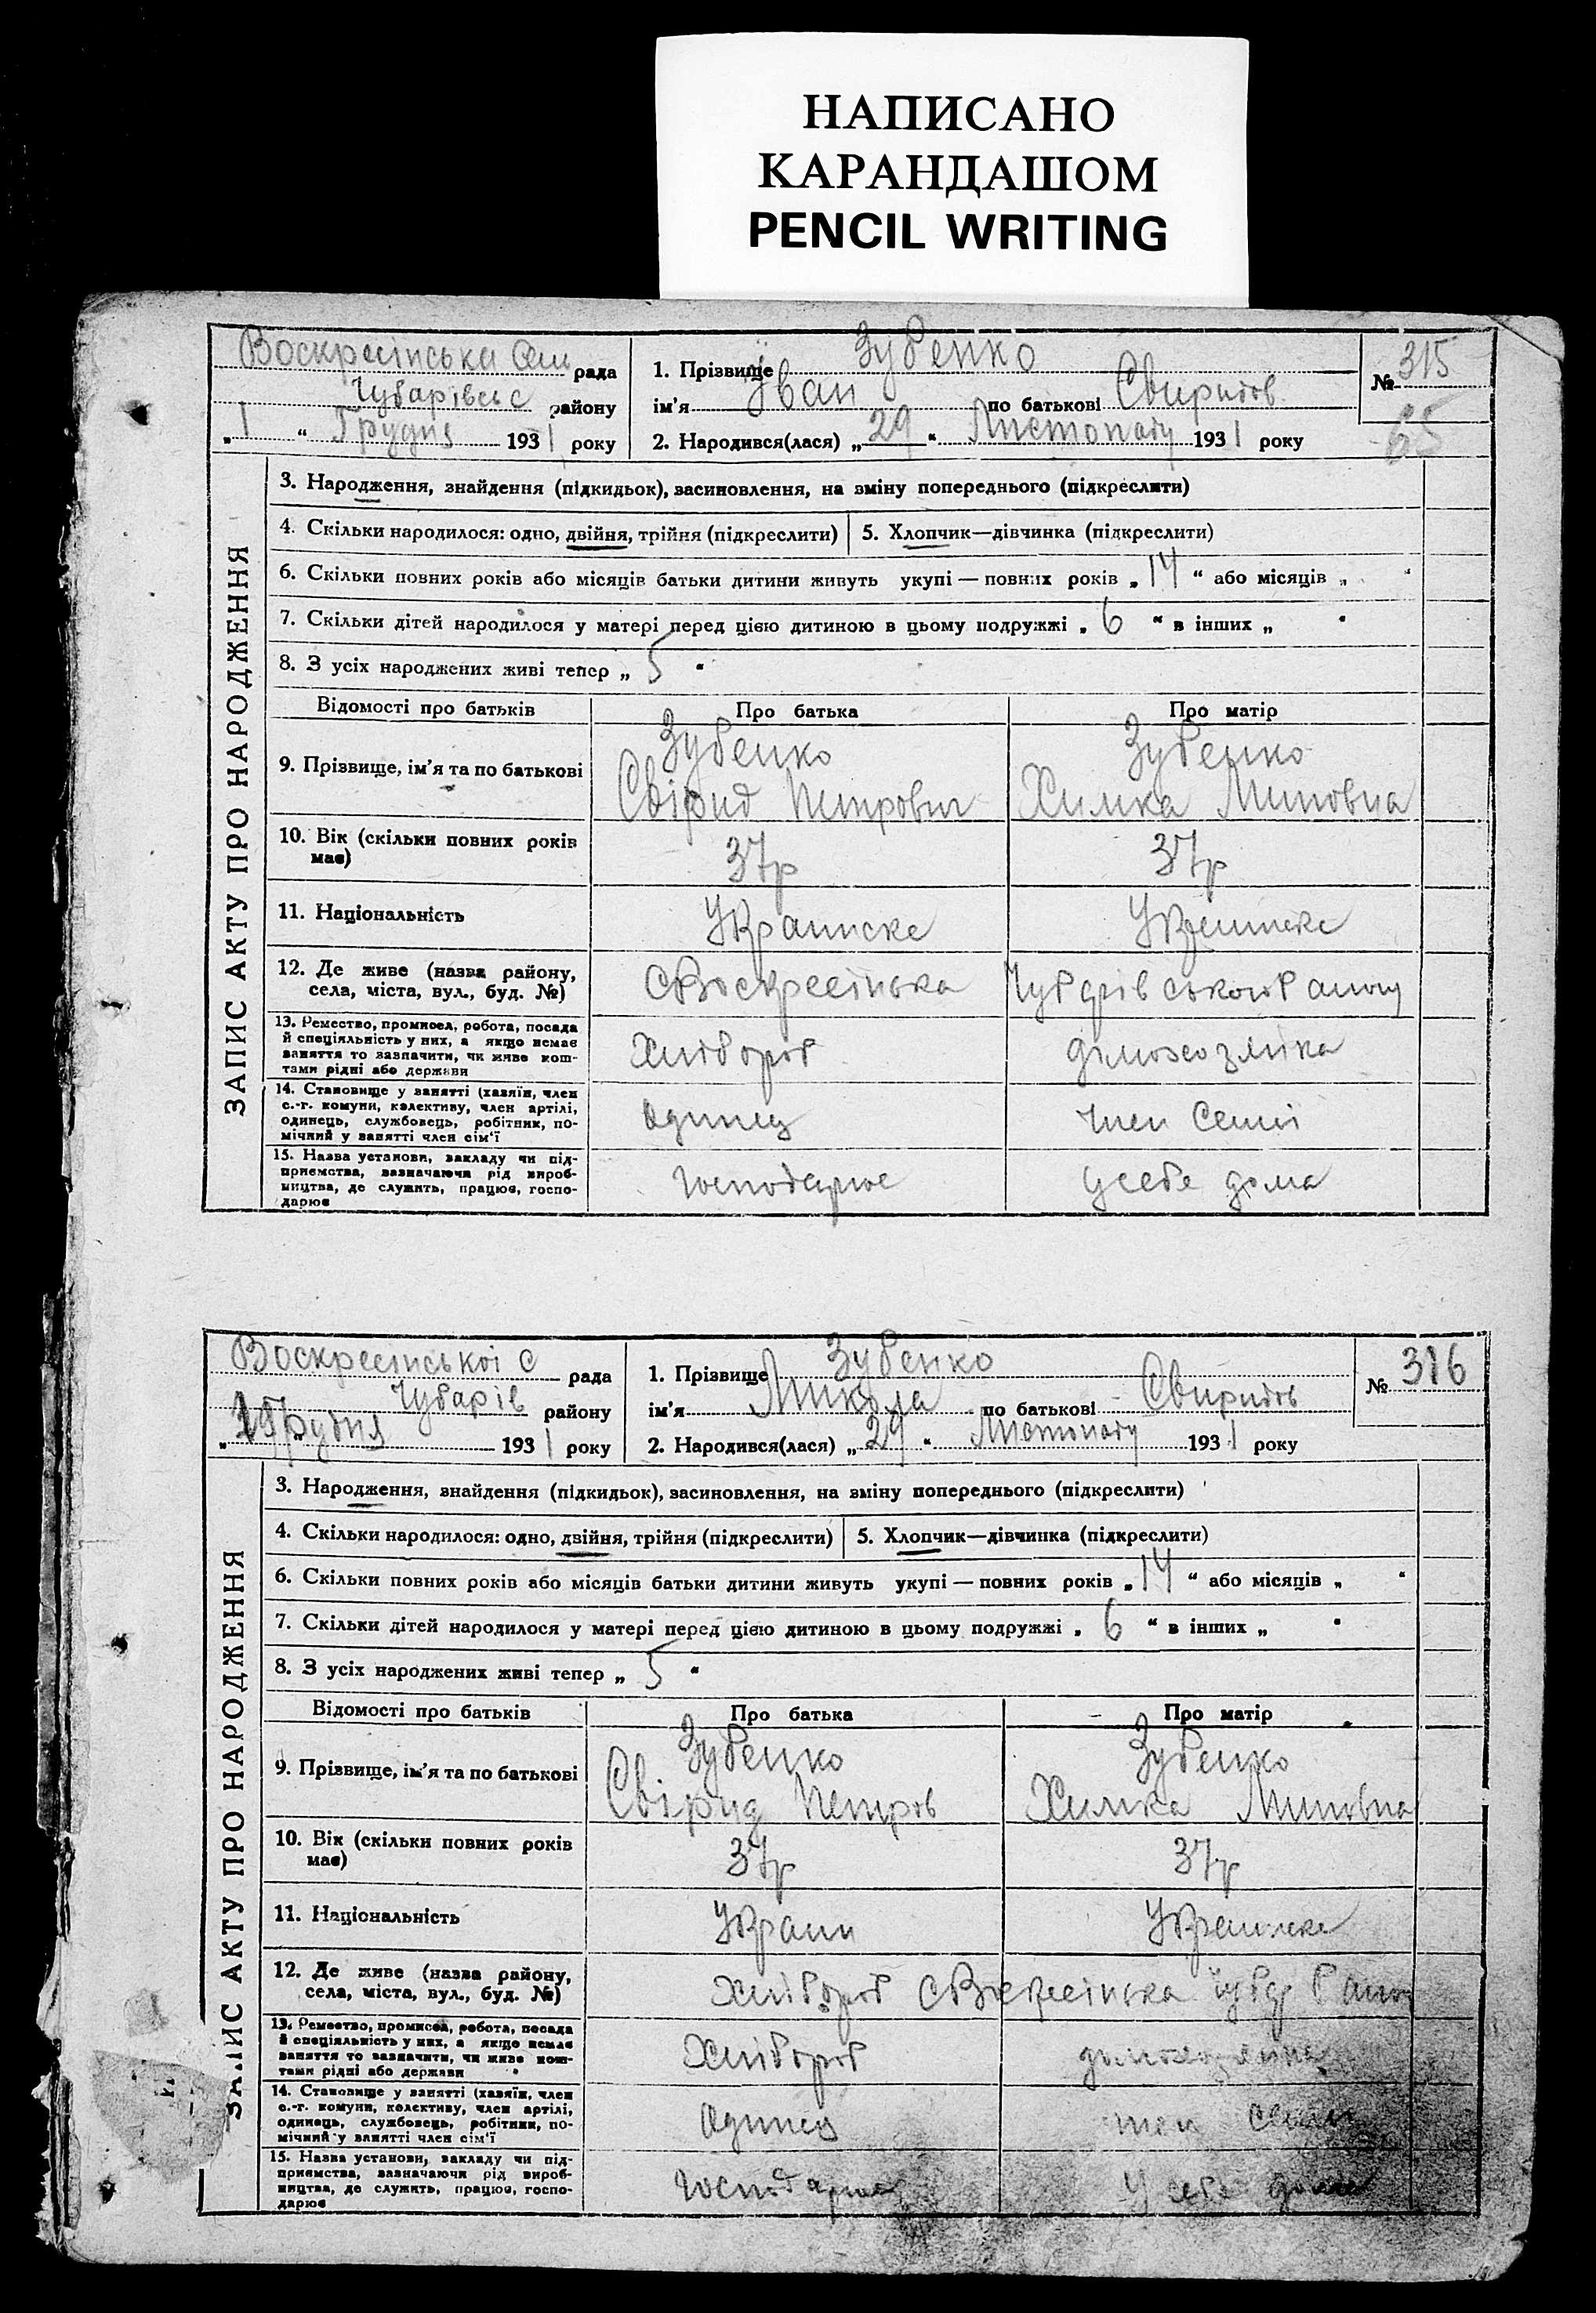 НАПИСАНО
КАРАНДАШОМ
PENCIL WRITING
Воскресінська рада
Чубарівськ району
„ 1 “ Грудня 1931 року
1. Прізвище Зубенко
ім'я Іван по батькові Свиридов
2. Народився(лася) „ 29 “ Листопаду 1931 року
№ 315
65
ЗАПИС АКТУ ПРО НАРОДЖЕННЯ
3. Народження, знайдення (підкидьок), засиновлення, на зміну попереднього (підкреслити)
4. Скільки народилося: одно, двійня, трійня (підкреслити) 5. Хлопчик—дівчинка (підкреслити)
6. Скільки повних років або місяців батьки дитини живуть укупі — повних років „ 14 “ або місяців „ “
7. Скільки дітей народилося у матері перед цією дитиною в цьому подружжі „ 6 “ в інших „ “
8. З усіх народжених живі тепер „ 5 “
Відомості про батьків Про батька Про матір
9. Прізвище, ім'я та по батькові
Зубенко Свірид Петрович
Зубенко Химка Миновна
10. Вік (скільки повних років має)
37р 37р
11. Національність
Украинске
12. Де живе (назва району, села, міста, вул., буд. №)
с Воскресінька
13. Ремество, промисел, робота, посада
й спеціяльність у них, а якщо немає
заняття то зазначити, чи живе кош-
тами рідні або держави
Хлібороб домохозяйка
14. Становище у занятті (хазяїн, член
с.-г. комуни, колективу, член артілі,
одинець, службовець, робітник, по-
мічний у занятті член сім'ї
Одинец член Семії
15. Назва установи, закладу чи під-
приємства, зазначаючи рід вироб-
ництва, де служить, працює, госпо-
дарює
Господарює усебе дома
Воскресінської с рада
Чубарів району
1 Грудня 1931 року
1. Прізвище Зубенко
ім'я Микола по батькові Свиридов
2. Народився(лася) „ 29 “ Листопаду 1931 року
№ 316
ЗАПИС АКТУ ПРО НАРОДЖЕННЯ
3. Народження, знайдення (підкидьок), засиновлення, на зміну попереднього (підкреслити)
4. Скільки народилося: одно, двійня, трійня (підкреслити) 5. Хлопчик—дівчинка (підкреслити)
6. Скільки повних років або місяців батьки дитини живуть укупі — повних років „ 14 “ або місяців „ “
7. Скільки дітей народилося у матері перед цією дитиною в цьому подружжі „ 6 “ в інших „ “
8. З усіх народжених живі тепер „ 5 “
Відомості про батьків Про батька Про матір
9. Прізвище, ім'я та по батькові
Зубенко Свірид Петров
Зубенко Химка Миновна
10. Вік (скільки повних років має)
37р 37р
11. Національність
Украин
12. Де живе (назва району, села, міста, вул., буд. №)
Хлібороб с Воскресінька
13. Ремество, промисел, робота, посада
й спеціяльність у них, а якщо немає
заняття то зазначити, чи живе кош-
тами рідні або держави
Хлібороб домохозяйка
14. Становище у занятті (хазяїн, член
с.-г. комуни, колективу, член артілі,
одинець, службовець, робітник, по-
мічний у занятті член сім'ї
Одинец член
15. Назва установи, закладу чи під-
приємства, зазначаючи рід вироб-
ництва, де служить, працює, госпо-
дарює
Господарює У себе дома